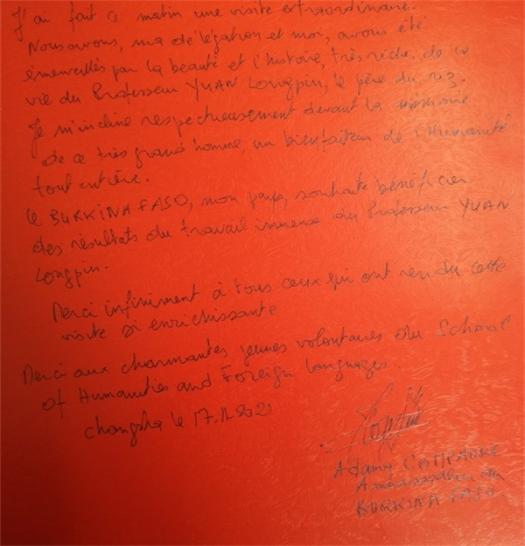 J'ai fait ce matin une visite extraordinaire.
Nous avons, ma délégation et moi, avons été
émerveillés par la beauté et l'histoire, très riche, de la
vie du Professeur YUAN Longpin, le père du riz.
Je m'incline respectueusement devant la mémoire
de ce très grand homme, un bienfaiteur de l'Humanité
tout entière.
Le BURKINA FASO, mon pays, souhaite bénéficier
des résultats du travail immense du Professeur YUAN
Longpin.
Merci infiniment à tous ceux qui ont rendu cette
visite si enrichissante
Merci aux charmantes jeunes volontaires du School
of Humanities and Foreign languages.
Changsha le 17.11.2021
Adama COMPAORE
Ambassadeur du
BURKINA FASO